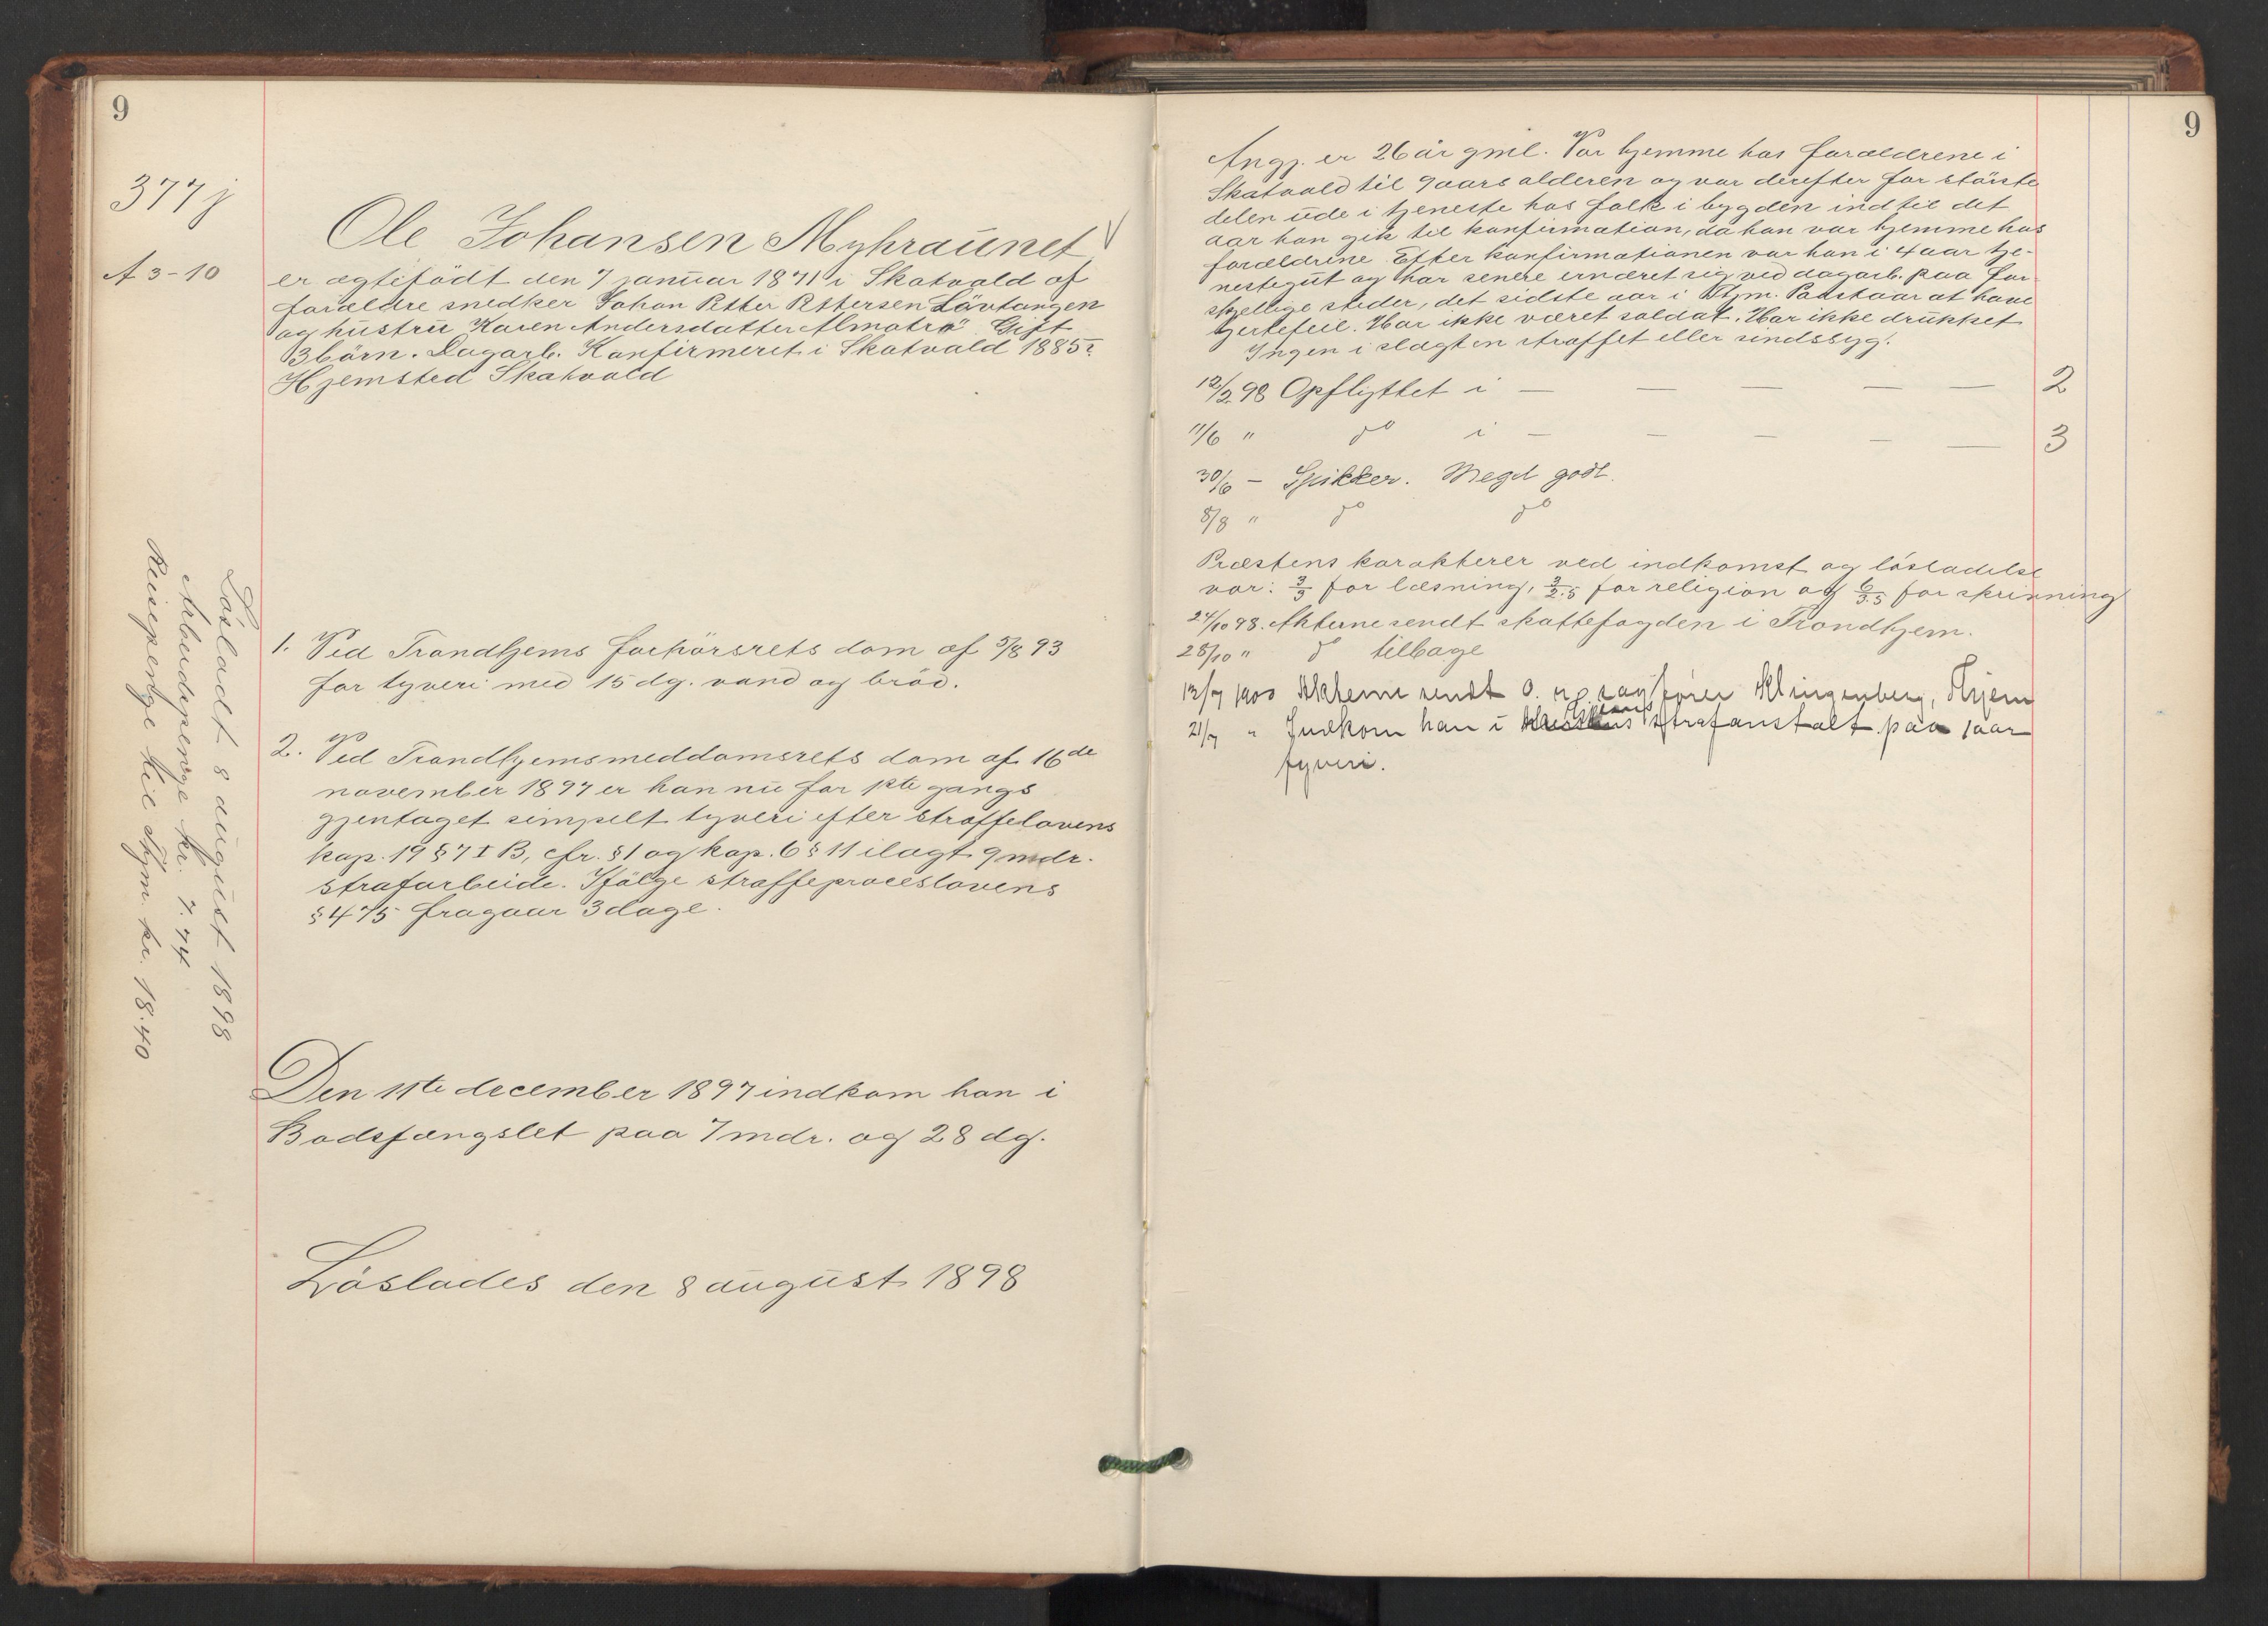 9
377j
A 3-10
Ole Johansen Myhraunet
er ægtefödt den 7 januar 1871 i Skatvold af
forældre snedker Johan Petter Pettersen Lövtangen
og hustru Karen Andersdatter Almotrø. Gift
3 börn. Dagarb. Konfirmeret i Skatvold 1885.
Hjemsted Skatvold
1. Ved Trondhjems forhörsrets dom af 5/8 93
for tyveri med 15 dg. vand og bröd.
2. Ved Trondhjems meddomsrets dom af 16de
november 1897 er han nu for 1ste gangs
gjentaget simpelt tyveri efter straffelovens
kap. 19 § 7 I B, cfr. § 1 og kap. 6 § 11 ilagt 9 mdr.
strafarbeide. Ifölge straffeproceslovens
§ 475 fragaar 3 dage.
Den 11te december 1897 indkom han i
Bodsfængslet paa 7 mdr. og 28 dg.
Löslades den 8 august 1898
Lösladt 8 august 1898
Arbeidspenge kr. 7.74
Reisepenge til Thjm. kr. 18.40
9
Angj. er 26 år gml. Var hjemme hos forældrene i
Skatvold til 9 aars alderen og var derefter for störste
delen ude i tjeneste hos folk i bygden indtil det
aar han gik til konfirmation, da han var hjemme hos
forældrene. Efter konfirmationen var han i 4 aar tje-
nestegut og har senere ernæret sig ved dagarb. paa for-
skjellige steder, det sidste aar i Thjm. Paastaar at have
hjertefeil. Har ikke været soldat. Har ikke drukket
Ingen i slægten straffet eller sindssyg.
12/2 98 Opflyttet i — — — — — 2
11/6 " do i — — — — — 3
30/6 — Spikker. Meget godt.
8/8 " do do
Præstens karakterer ved indkomst og lösladelse
var: 3/3 for læsning, 3/2.5 for religion og 6/3.5 for skrivning
24/10 98. Akterne sendt skattefogden i Trondhjem.
28/10 " do tilbage
12/7 1900 Akterne sendt O. r. sagfører Klingenberg, Thjem
21/7 " Indkom han i strafanstalt paa 1 aar
tyveri.